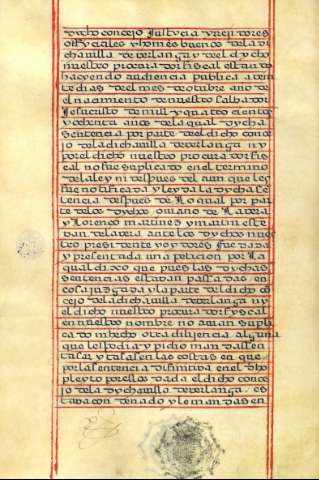 dicho concejo Justicia y regidores
ofiçiales y homes buenos de la di
cha villa de berlanga y del dicho
nuestro procurador fiscal estando
haçiendo audiencia publica a vein
te dias del mes de otubre año de
el naçimiento de nuestro salbador
Jesucristo de mill y quatroçientos
y ochenta años de la qual dicha
sentencia por parte del dicho conce
jo de la dicha villa de berlanga ny
por el dicho nuestro procurador fis
cal no fue suplicado en el termino
de la ley ni despues del aun que les
fue notificada y leyda la dicha se
tencia despues de lo qual por par
te de los dichos juliano de
y Lorenço martines y martin este
ban de la vera ante los dichos nues
tro presidente y oydores fue dada
y presentada una petiçion por la
qual dixo que pues las dichas
sentencias estaban passadas en
cosa juzgada y la parte del dicho co
çejo de la dicha villa de berlanga ny
el dicho nuestro procurador fyscal
en nuestro nombre no avian suplica
do ni hecho otra diligencia alguna
que les pedia y pidio mandassen
tasar y tasasen las costas en que
por la sentencia difinitiva en el dho
pleyto por ellos dada el dicho conce
jo de la dicha villa de berlanga es
taba condenado y le mandasen